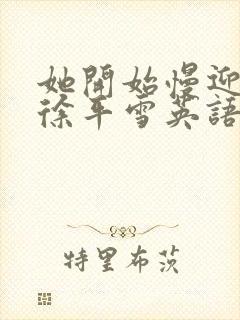 她開始慢迎
徐平雪英語
特里布茨